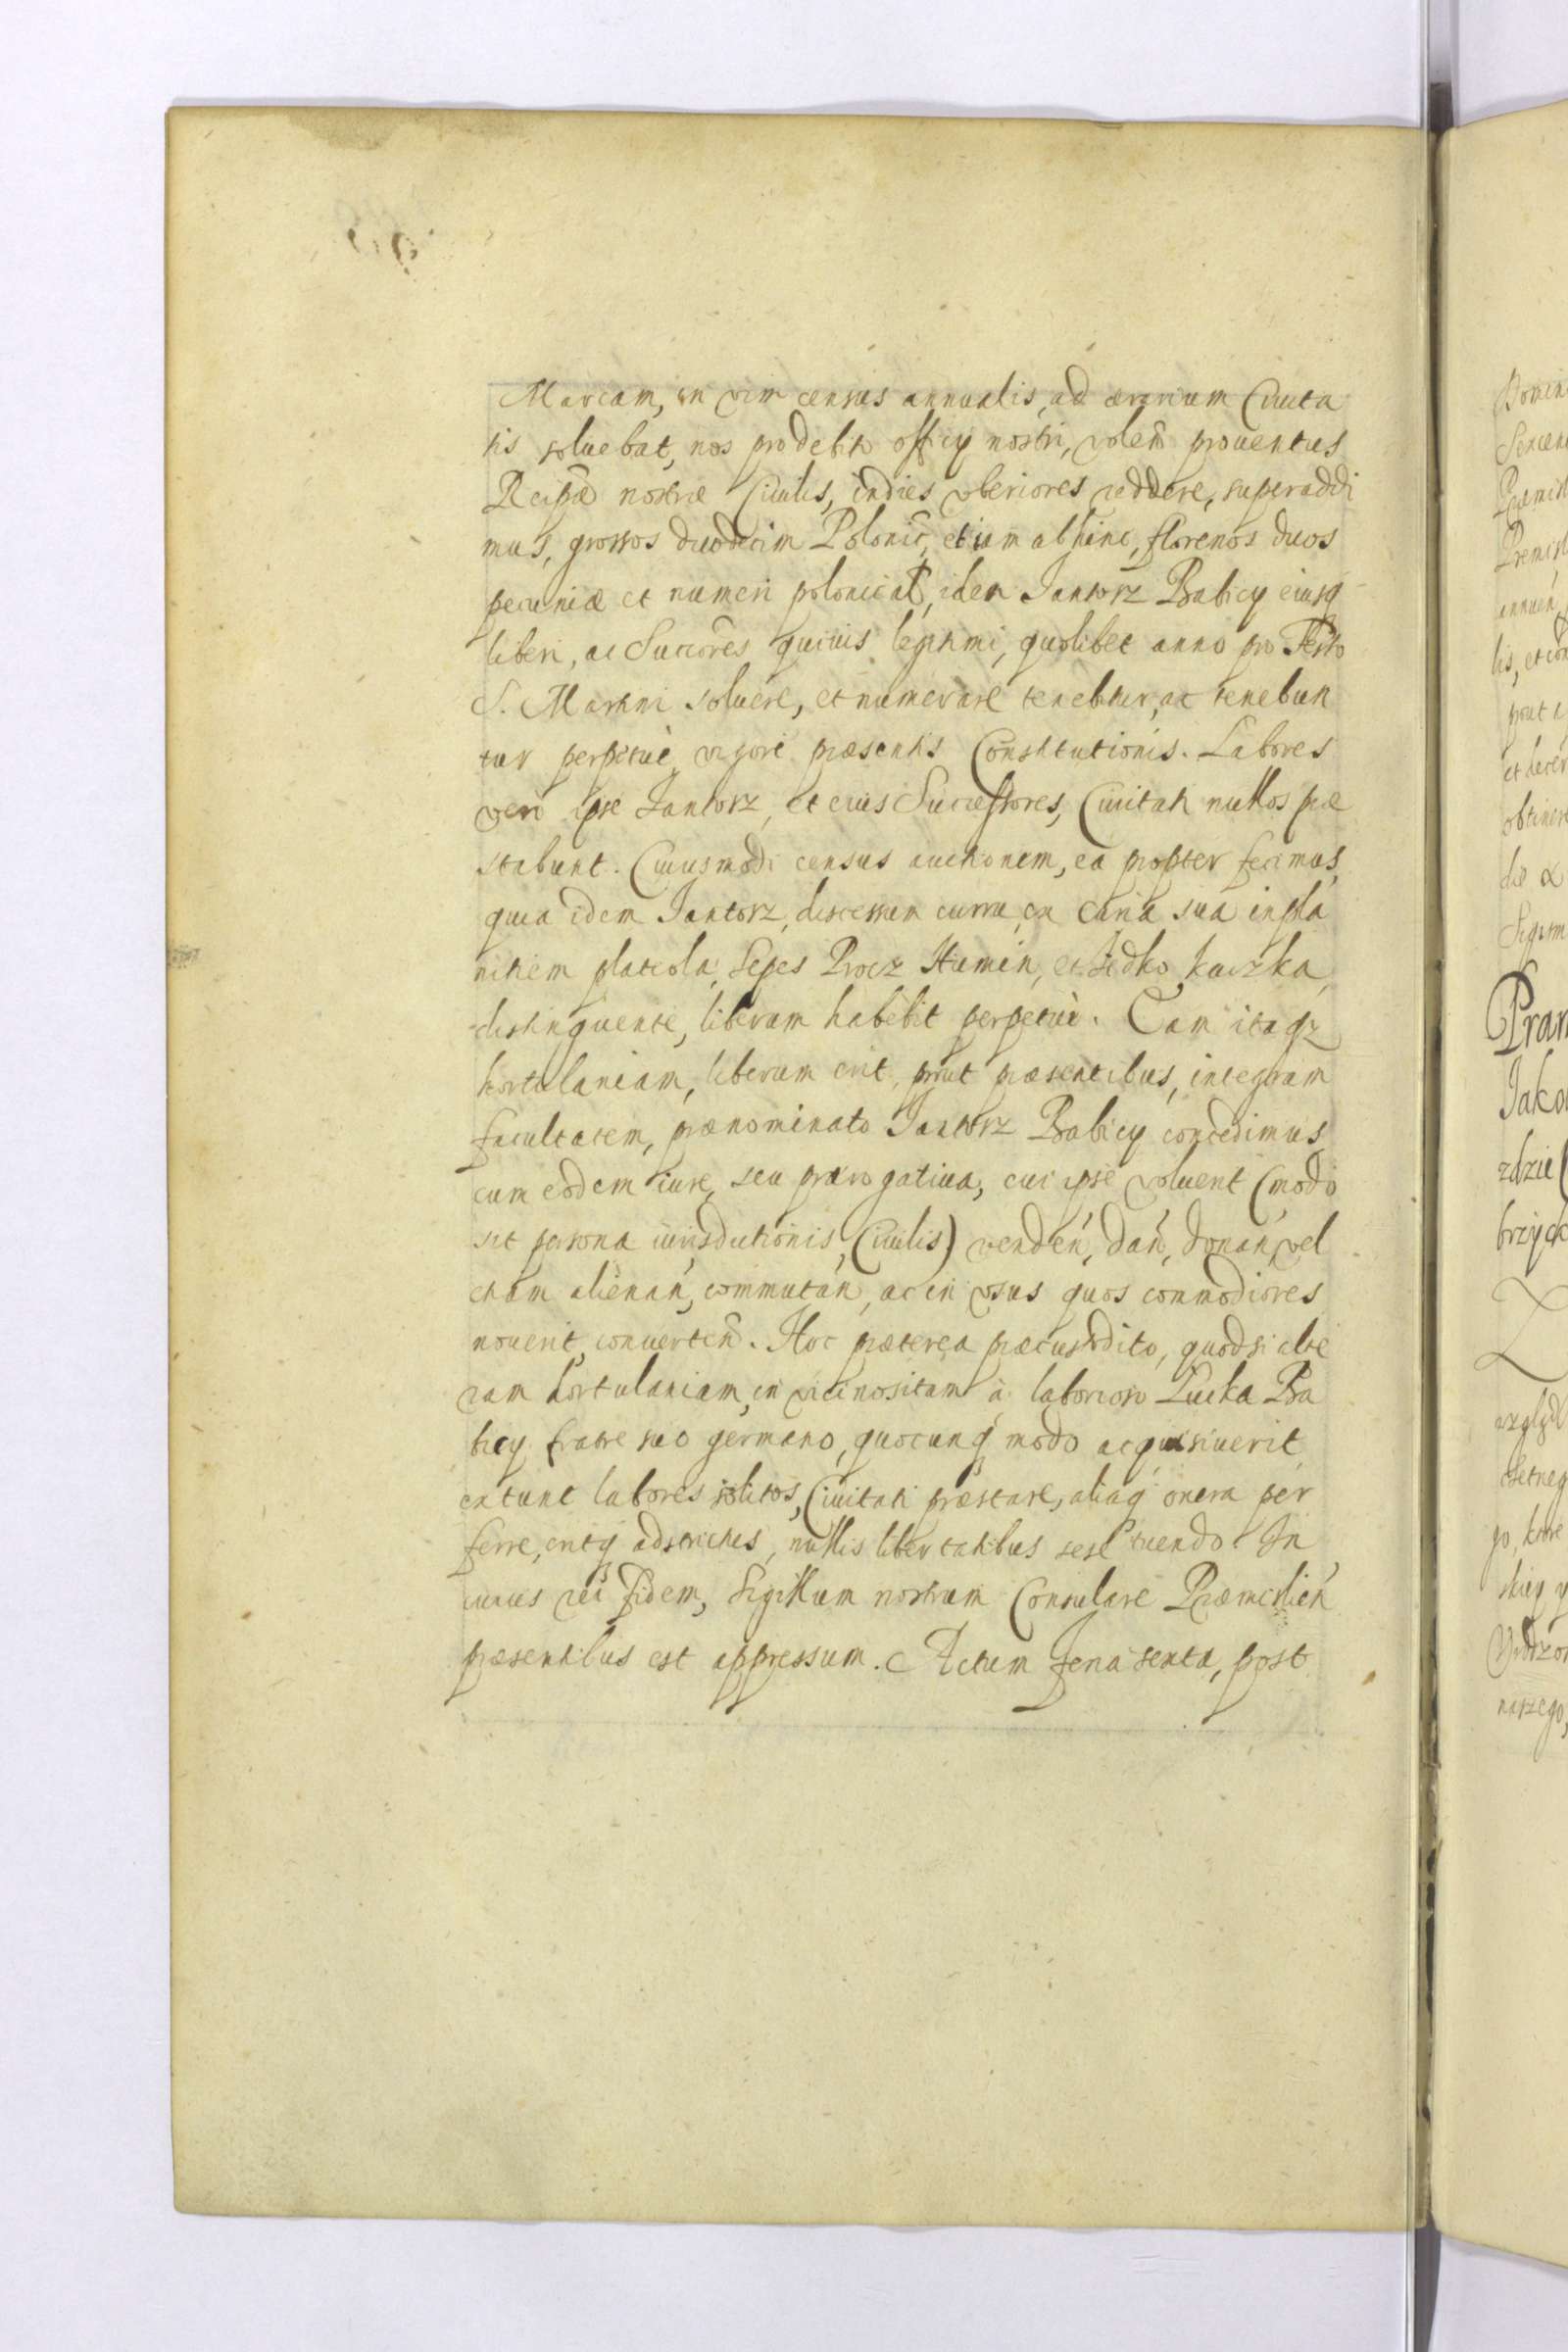 Marcam, in vim census annualis, ad ærarium Civita
tis soluebat, nos pro debito officij nostri, volen̄ prouentus
Reipae nostræ Ciuilis, indies vberiores reddere, superaddi
mus, grossos duodecim Polonic, etiam abhinc, florenos duos
pecuniæ et numeri polonicał, idem Jantorz Babicy eiusq
liberi, ac Succores quiuis legitimi, quolibet anno pro Festo
S. Martini soluere, et numerare tenebitur, ac tenebun
tur perpetuè, vigore præsentis Constitutionis. Labores
vero ipse Jantorz, et eius Successores, Ciuitati nullos præ
stabunt. Cuiusmodi census auctionem, ea propter fecimus,
quia idem Jantorz, discessum curru, ex curia sua in pla
nitiem plateola, sepes Procz Humin, et Fedko Kaczka,
distinguente, liberum habebit perpetuè. Eam itaqz
hortulaniam, liberum erit, prout præsentibus, integram
facultatem, prænominato Jantorz Babicy concedimus,
cum eodem iure, seu prærogatiua, cui ipse voluerit (modò
sit persona iurisdictionis, Ciuilis) venden̄, dan̄, donan̄, vel
etiam alienan̄, commutan̄, ac in vsus quos commodiores
nouerit, converten̄. Hoc præterea præcustodito, quodsi alte
ram hortulaniam, in vicino sitam à laborioso Lucka Ba
bicy fratre suo germano, quocunq modo acquisiuerit,
ex tunc labores solitos, Ciuitati præstare, aliaq onera per
ferre, eritq adstrictus, nullis libertatibus sese tuendo. In
cuius rei fidem, Sigillum nostrum Consulare Præmislien̄
præsentibus est appressum. Actum feria sexta, post
Pran
Jako
zdzie
brzyck